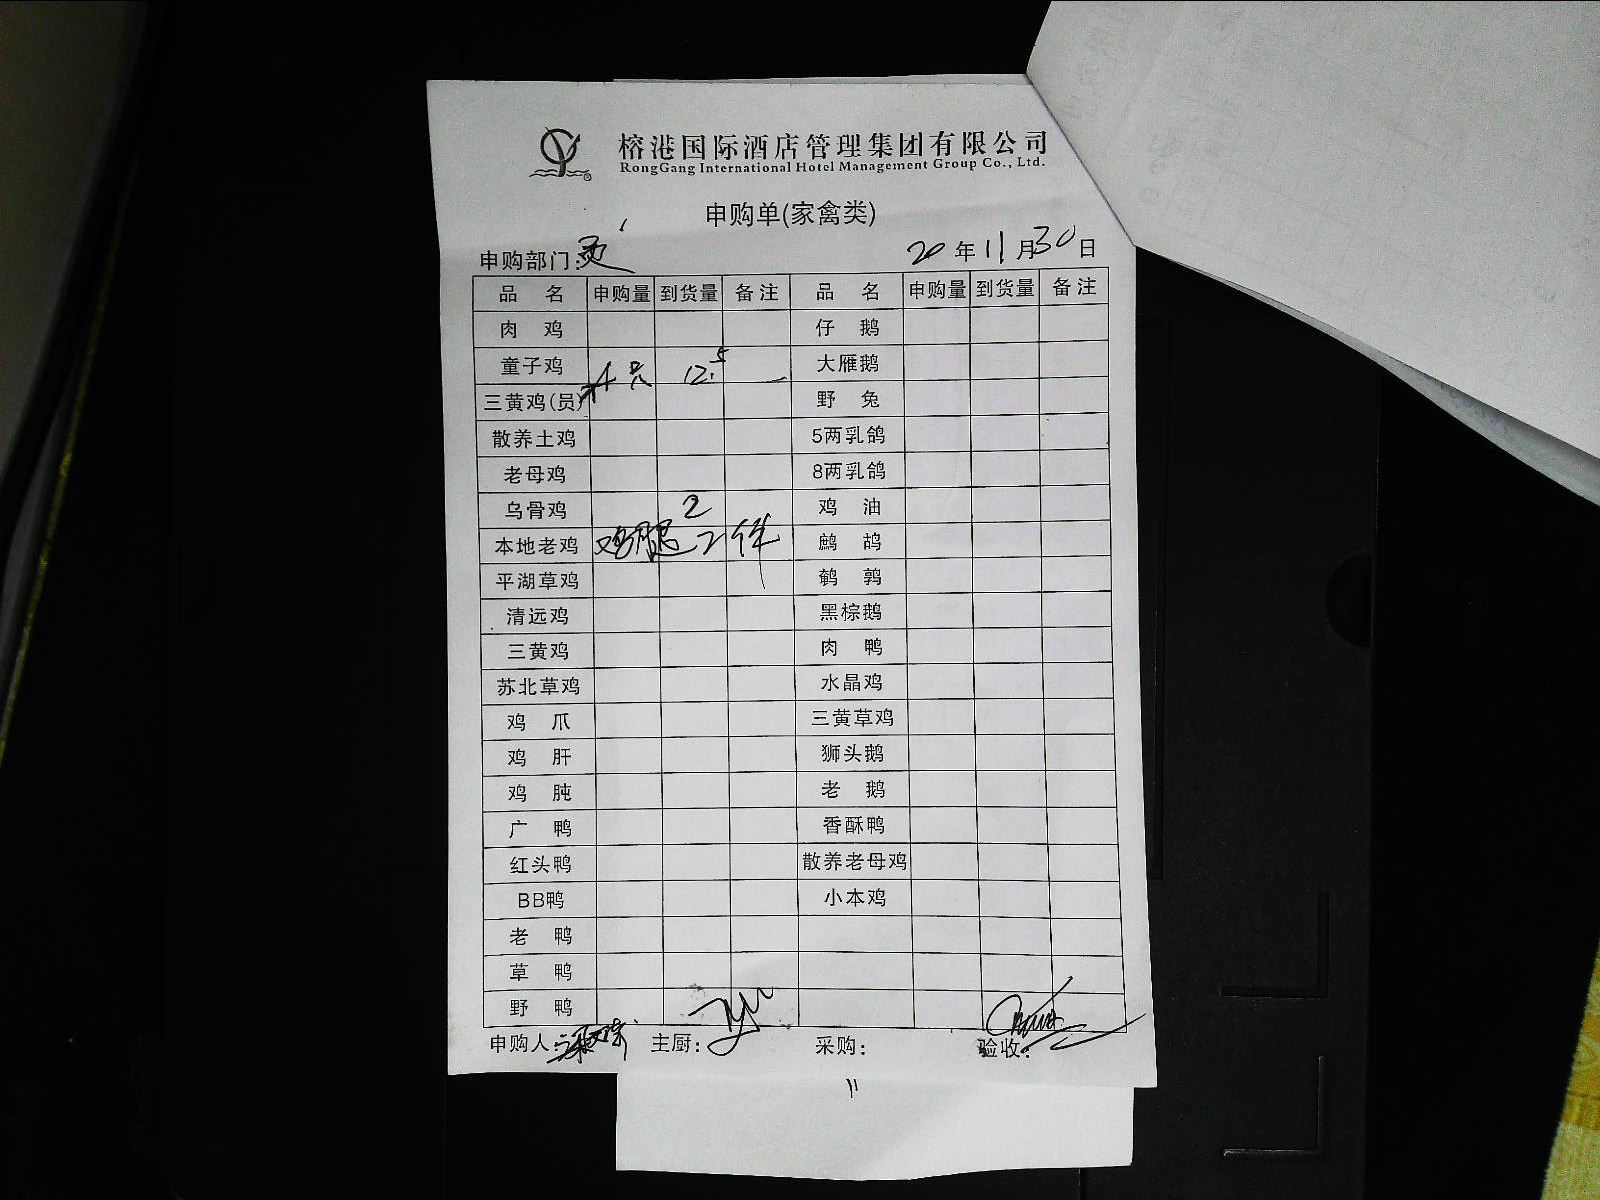 榕港国际酒店管理集团有限公司
RongGang International Hotel Management Group Co., Ltd.
申购单(家禽类)
申购部门: 20年11月30日
品名 申购量 到货量 备注 品名 申购量 到货量 备注
肉鸡 仔鹅
童子鸡 4只 12.5 大雁鹅
三黄鸡(员) 野兔
散养土鸡 5两乳鸽
老母鸡 8两乳鸽
乌骨鸡 2 鸡油
本地老鸡 鸡腿2件 鹧鸪
平湖草鸡 鹌鹑
清远鸡 黑棕鹅
三黄鸡 肉鸭
苏北草鸡 水晶鸡
鸡爪 三黄草鸡
鸡肝 狮头鹅
鸡肫 老鹅
广鸭 香酥鸭
红头鸭 散养老母鸡
BB鸭 小本鸡
老鸭
草鸭
野鸭
申购人: 主厨: 采购: 验收: